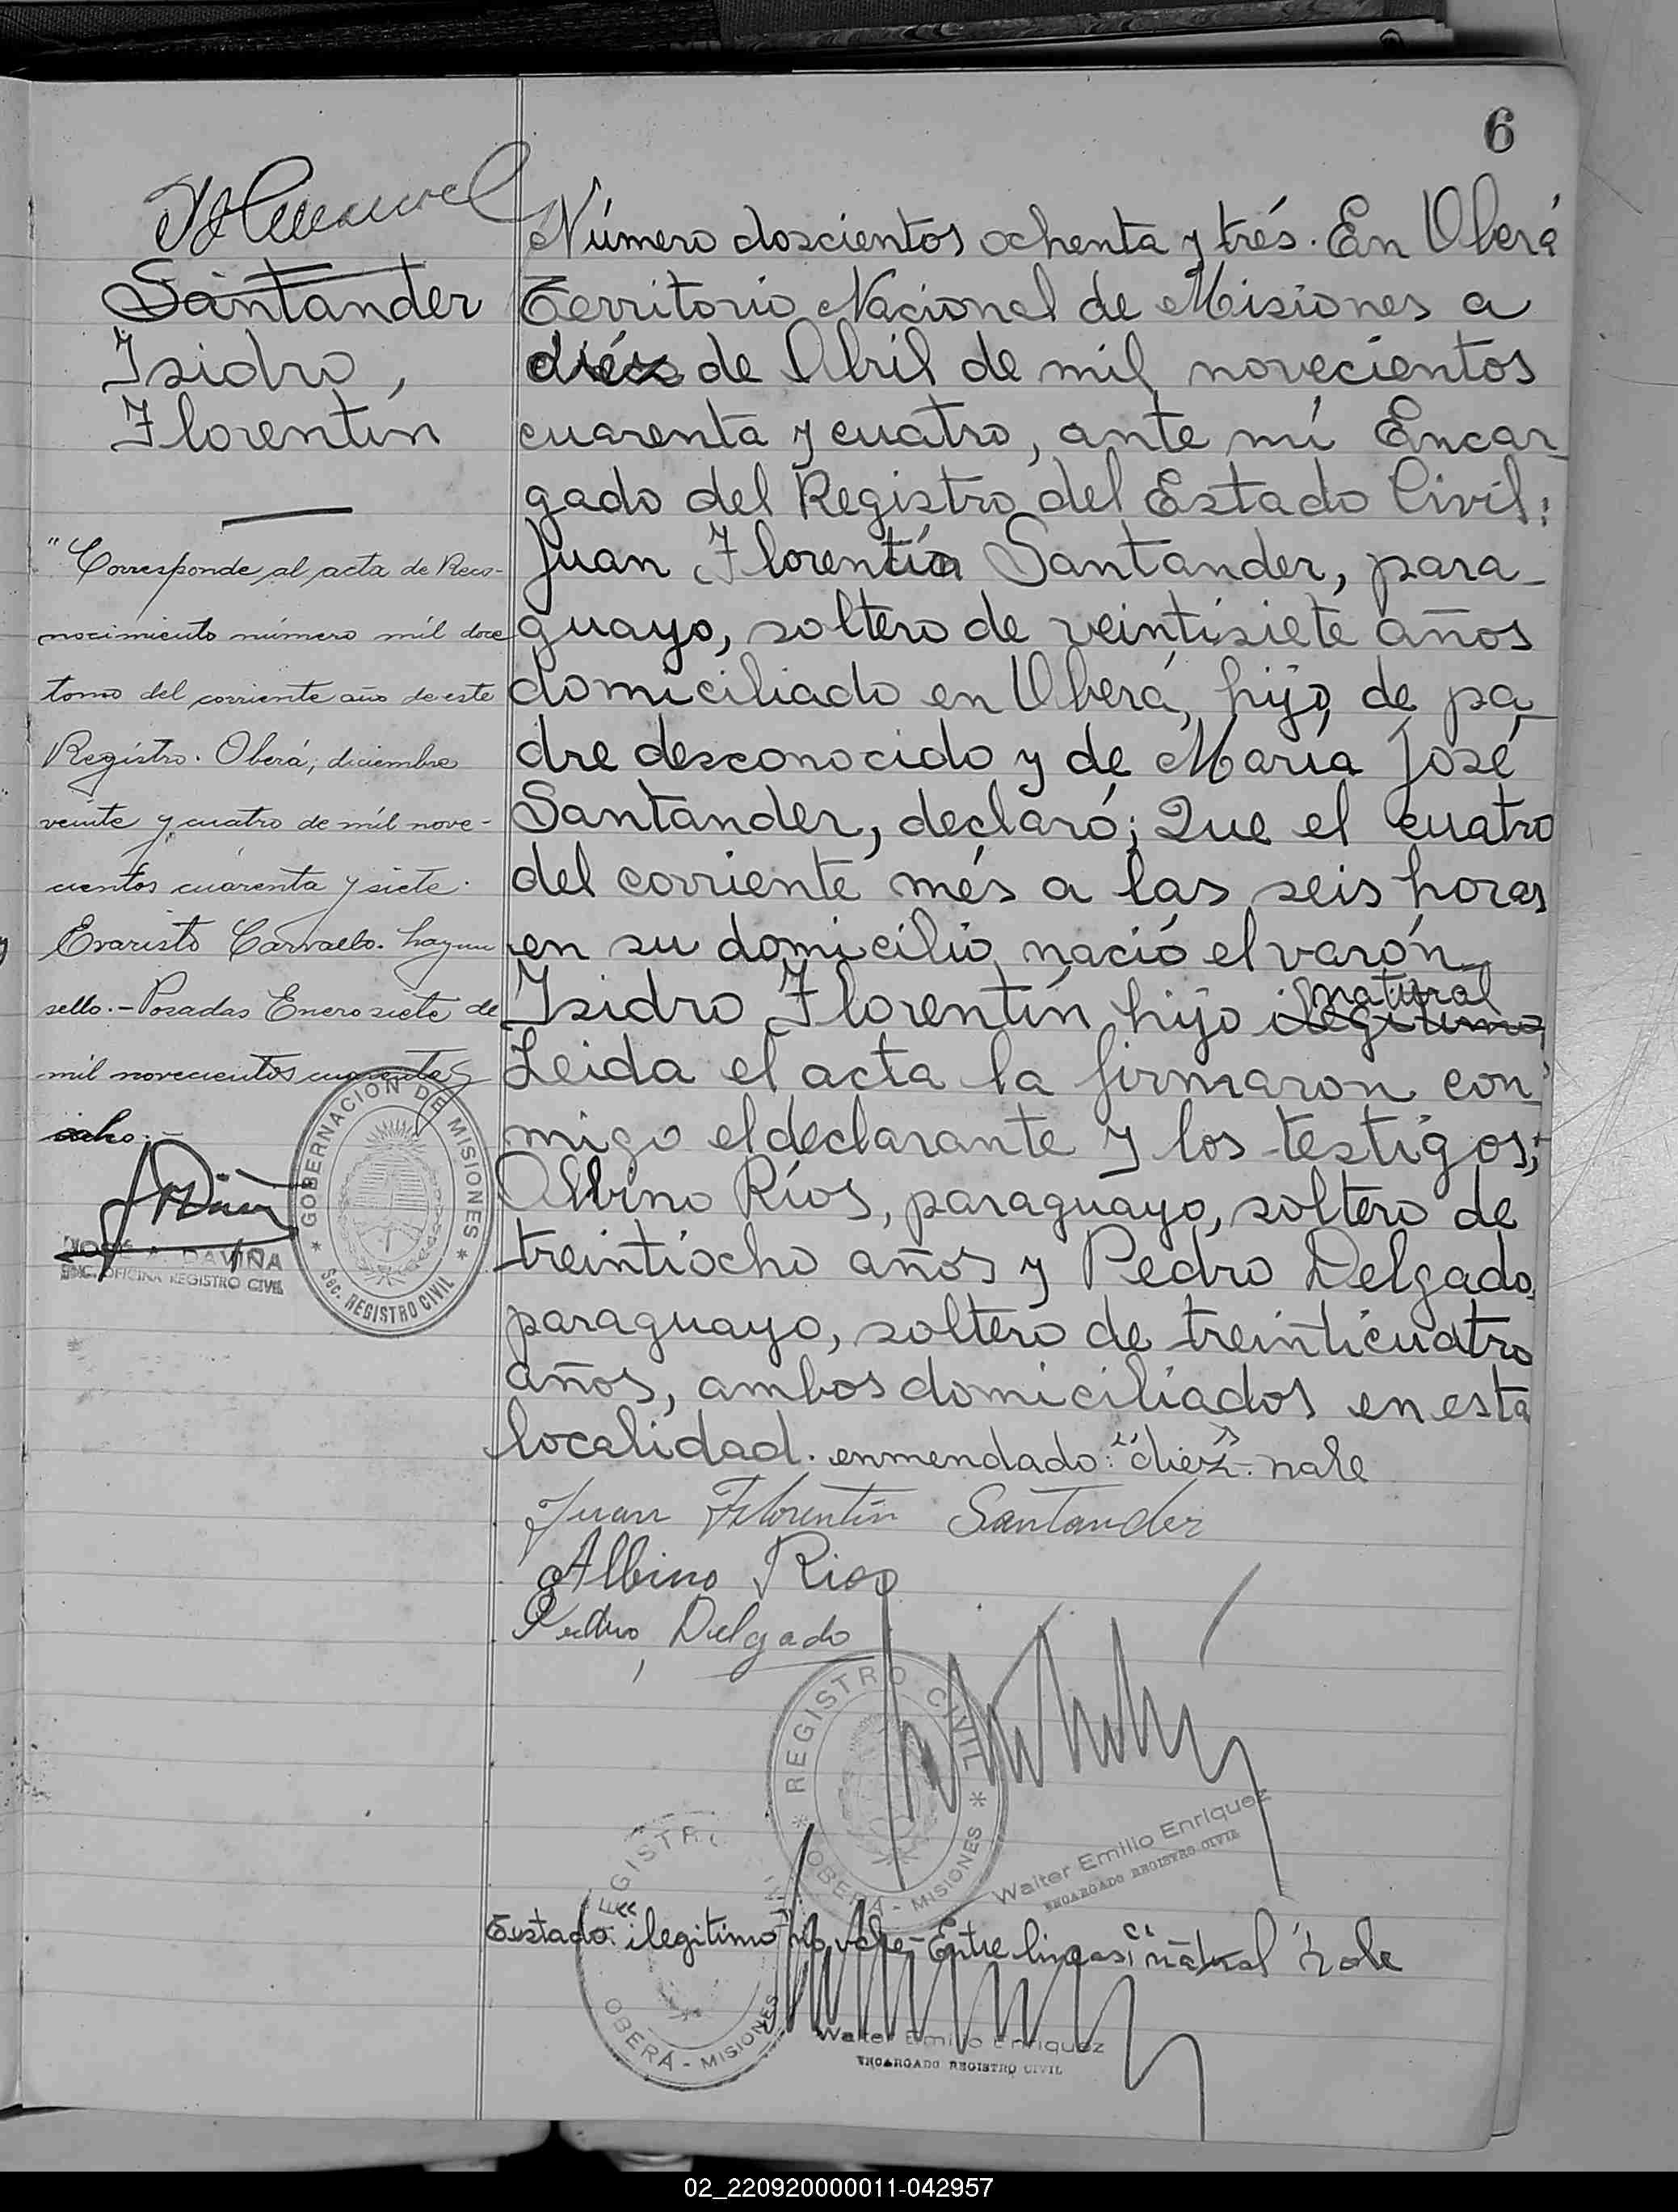 6
Santander
Isidro,
Florentín
"Corresponde al acta de Reco-
nocimiento número mil doce
tomo del corriente año de este
Registro. Oberá, diciembre
veinte y cuatro de mil nove-
cientos cuarenta y siete.
Evaristo Carvallo. hay un
sello.- Posadas Enero siete de
mil novecientos cuarenta
ocho.-
GOBERNACION DE MISIONES
Sec. REGISTRO CIVIL
JOSÉ A. DAVIÑA
ENC. OFICINA REGISTRO CIVIL
Número doscientos ochenta y trés. En Oberá
Territorio Nacional de Misiones a
diéz de Abril de mil novecientos
cuarenta y cuatro, ante mí Encar-
gado del Registro del Estado Civil:
Juan Florentín Santander, para-
guayo, soltero de veintisiete años
domiciliado en Oberá, hijo de pa-
dre desconocido y de María José
Santander, declaró; Que el cuatro
del corriente més a las seis horas
en su domicilio nació el varón
natural
Isidro Florentín hijo ilegitimo
Leida el acta la firmaron con-
migo el declarante y los testigos;
Albino Ríos, paraguayo, soltero de
treintiocho años y Pedro Delgado,
paraguayo, soltero de treinticuatro
años, ambos domiciliados en esta
localidad. enmendado: "diéz". vale
Juan Florentín Santander
Albino Rios
Pedro Delgado
REGISTRO CIVIL
OBERÁ - MISIONES
Walter Emilio Enriquez
ENCARGADO REGISTRO CIVIL
Testado: "ilegitimo" no vale - Entre lineas: "natural" vale
OBERÁ - MISIONES
Walter Emilio Enriquez
ENCARGADO REGISTRO CIVIL
02_220920000011-042957